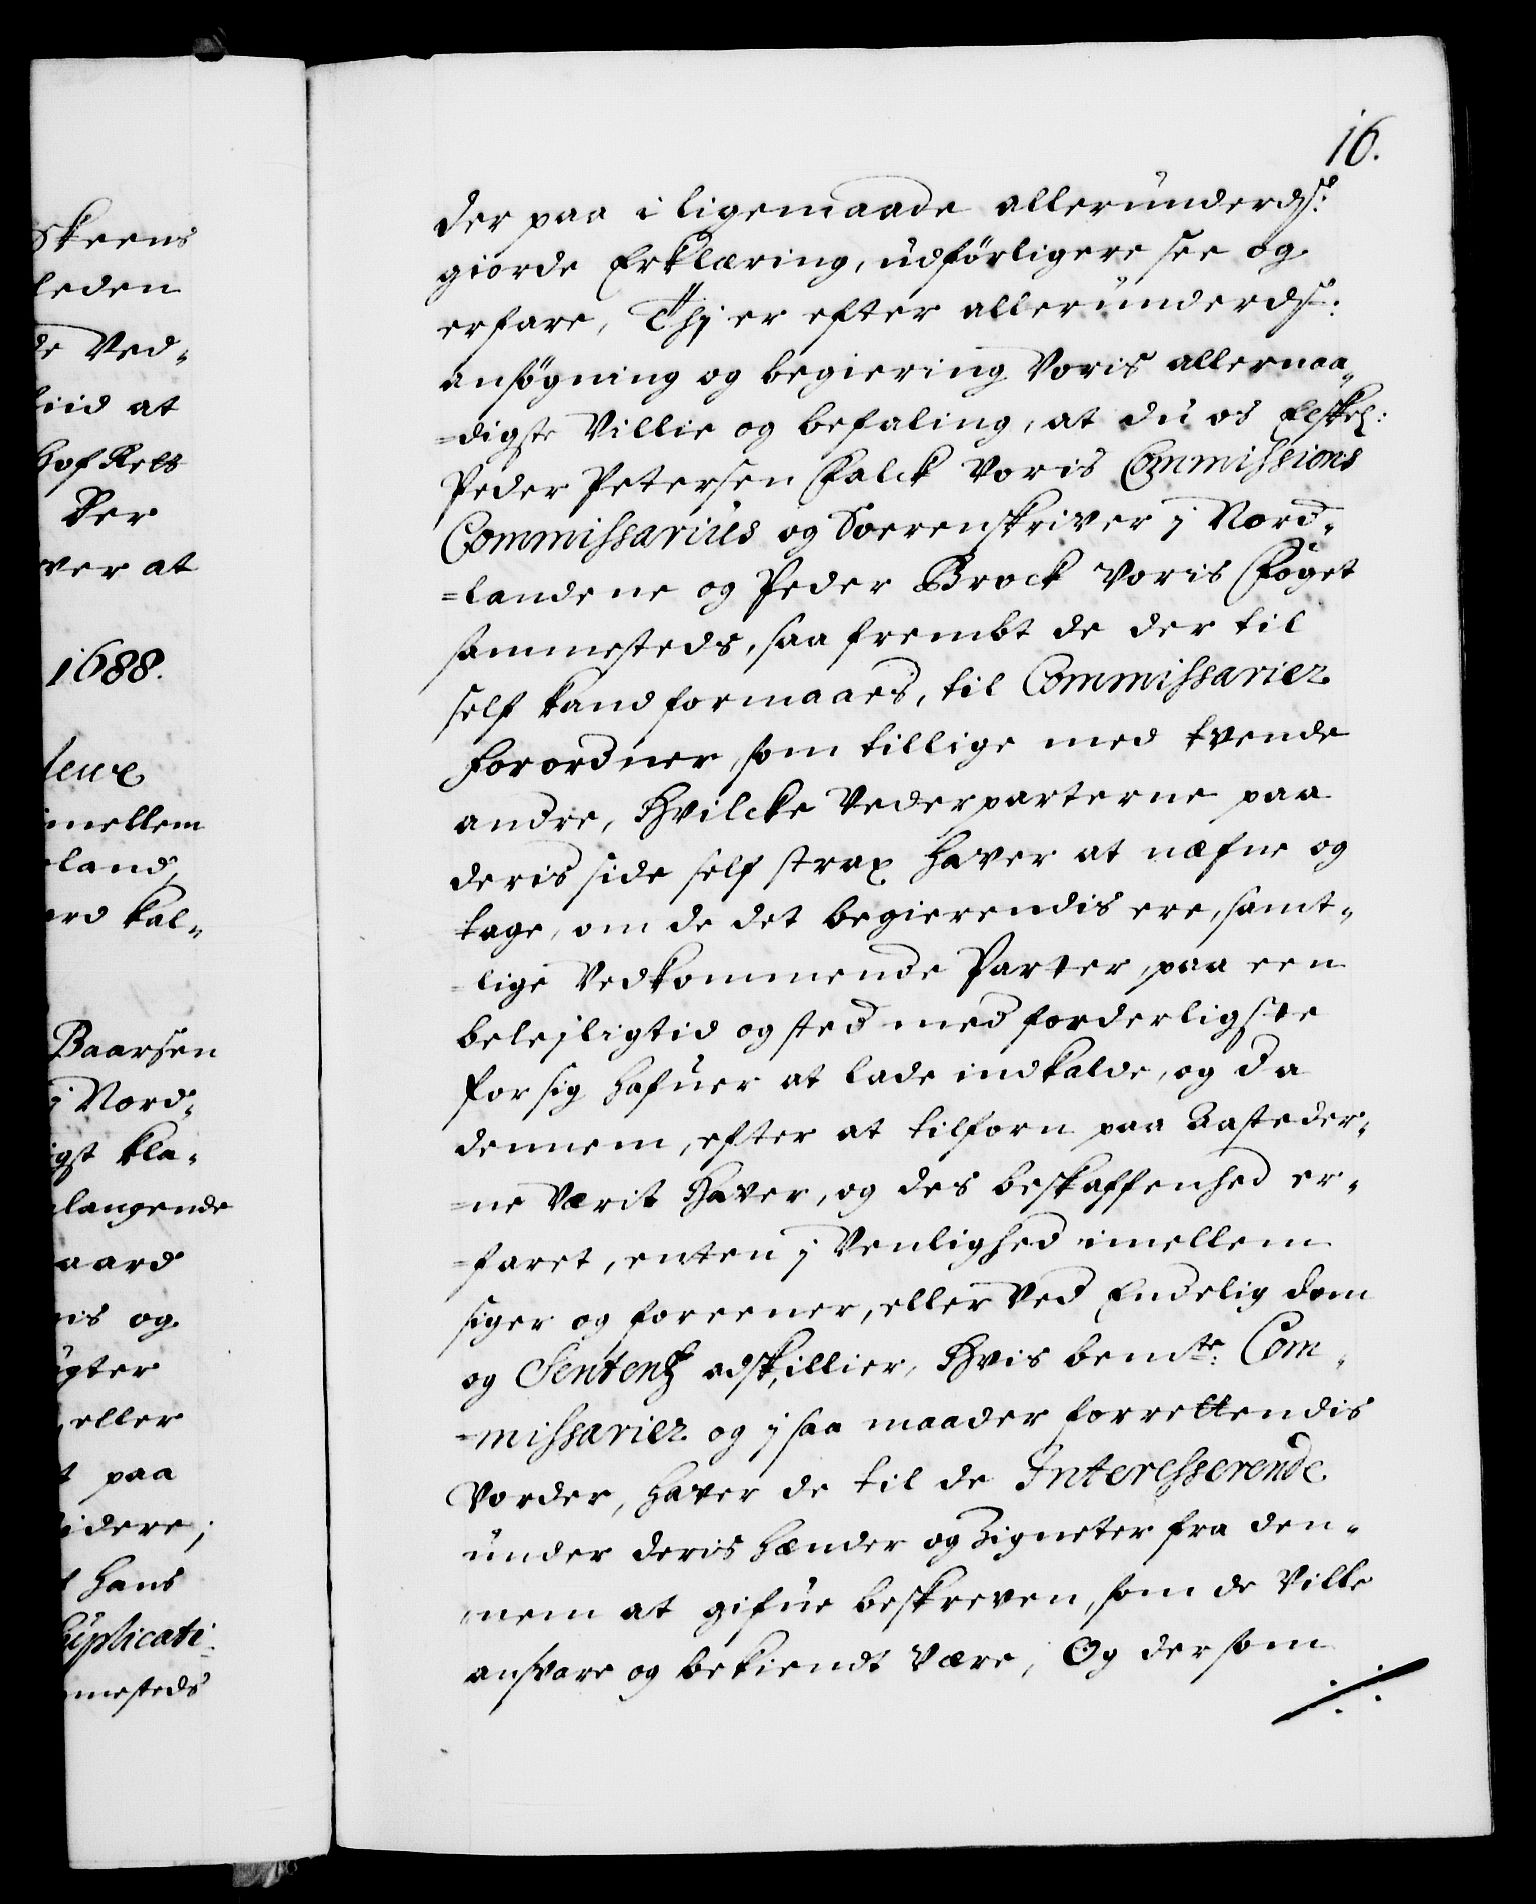 Skeens
leden
de Ved„
tiid at
HofRets
Der
ver at
1688.
imellem
land,
ard kal„
Baarsen
j Nord„
igst kla„
langende
aard
nis og
ugter
eller
t paa
idere;
Hans
Suplicati„
mesteds
16.
der paa i ligemaade allerunderdst:
giorde Erklæring, udförligere see og
erfare, Thj er efter allerunderdst:
ansögning og begiering Voris allernaa„
=digste Villie og befaling, at du os Elskel:
Peder Petersen Falck Voris Commissions
Commissarius og Soerenskriver j Nord„
=landene og Peder Brock Voris Foget
sammesteds, saa frembt de der til
self kand formaaes, til Commissarier
forordner, som tillige med tvende
andre, Hvilcke Vederparterne paa
deris side self strax haver at næfne og
tage, om de det begierendis ere, samt„
=lige Vedkommende Parter, paa een
belejlig tid og sted med forderligste
for sig hafuer at lade indkalde, og da
dennem, efter at tilforn paa Aasteder„
=ne Værit haver, og des beskaffenhed er„
=faret, enten j Venlighed imellem
siger og foreener, eller Ved Endelig dom
og Sententz adskillier, Hvis bemte: Com„
=missarier og j saa maader forrettendis
Vorder, haver de til de Interesserende
under deris hænder og Zigneter fra den„
nem at gifue beskreven, som de Ville
ansvare og bekiendt Være, Og dersom